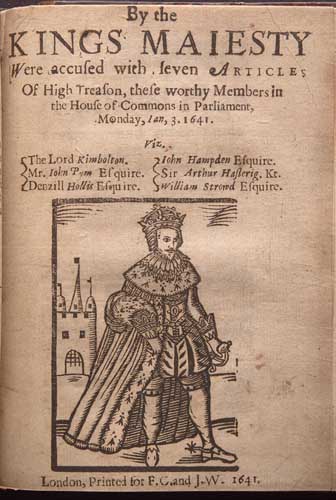 By the
KINGS MAIESTY
Were accused with seven ARTICLES
Of High Treason, these worthy Members in
the House of Commons in Parliament,
Monday, Ian, 3. 1641.
Viz.
The Lord Kimbolton.
Mr. Iohn Pym Esquire.
Denzill Hollis Esquire.
Iohn Hampden Esquire.
Sir Arthur Haslerig. Kt.
William Strowd Esquire.
London, Printed for F.C. and J.W. 1641.